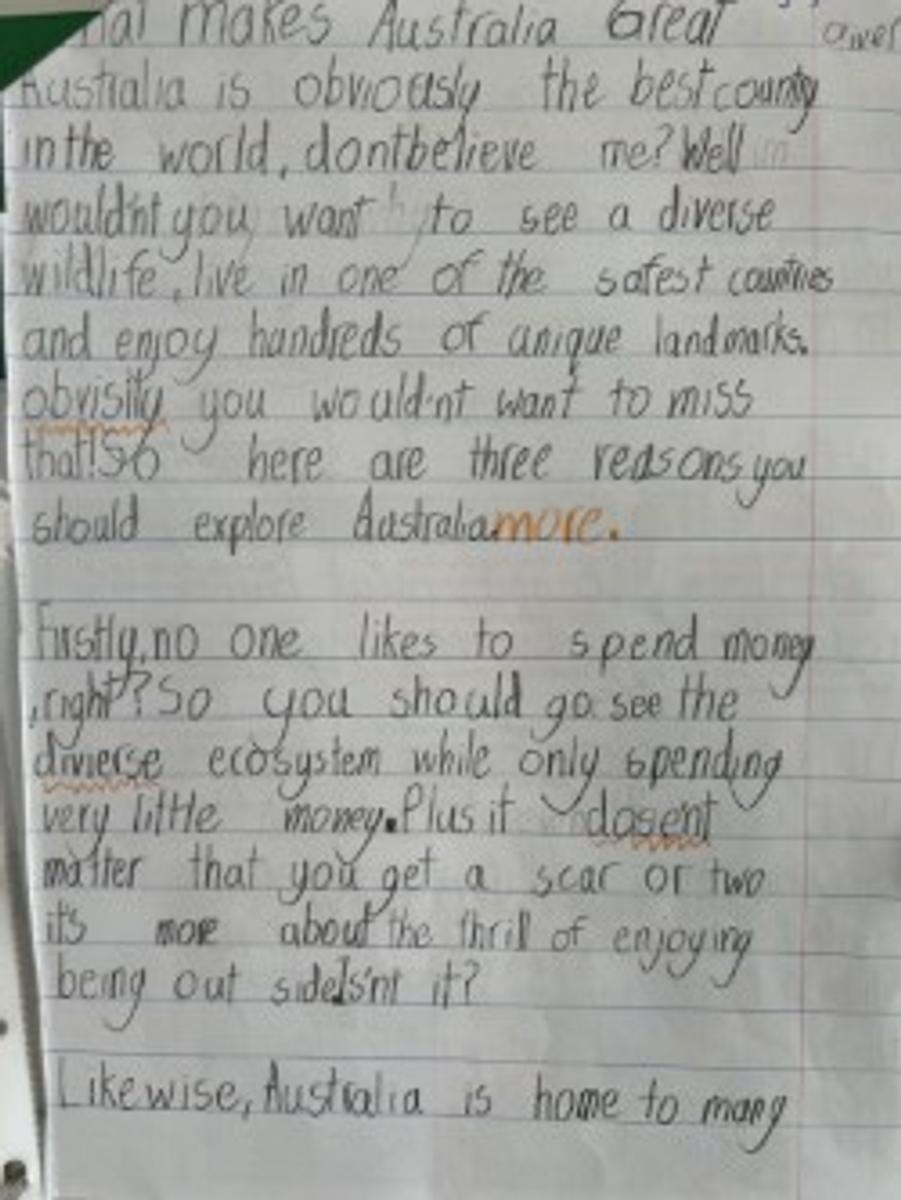 makes Australia Great
Australia is obviously the best country
in the world, dont believe me? Well
would'nt you want to see a diverse
wildlife, live in one of the safest countries
and enjoy hundreds of unique landmarks.
obvisily you would'nt want to miss
that! So here are three reasons you
should explore Australia. more.
Firstly, no one likes to spend money
, right? So you should go see the
divierse ecosystem while only spending
very little money. Plus it dosent
matter that you get a scar or two
it's more about the thrill of enjoying
being out side Is'nt it?
Likewise, Australia is home to many